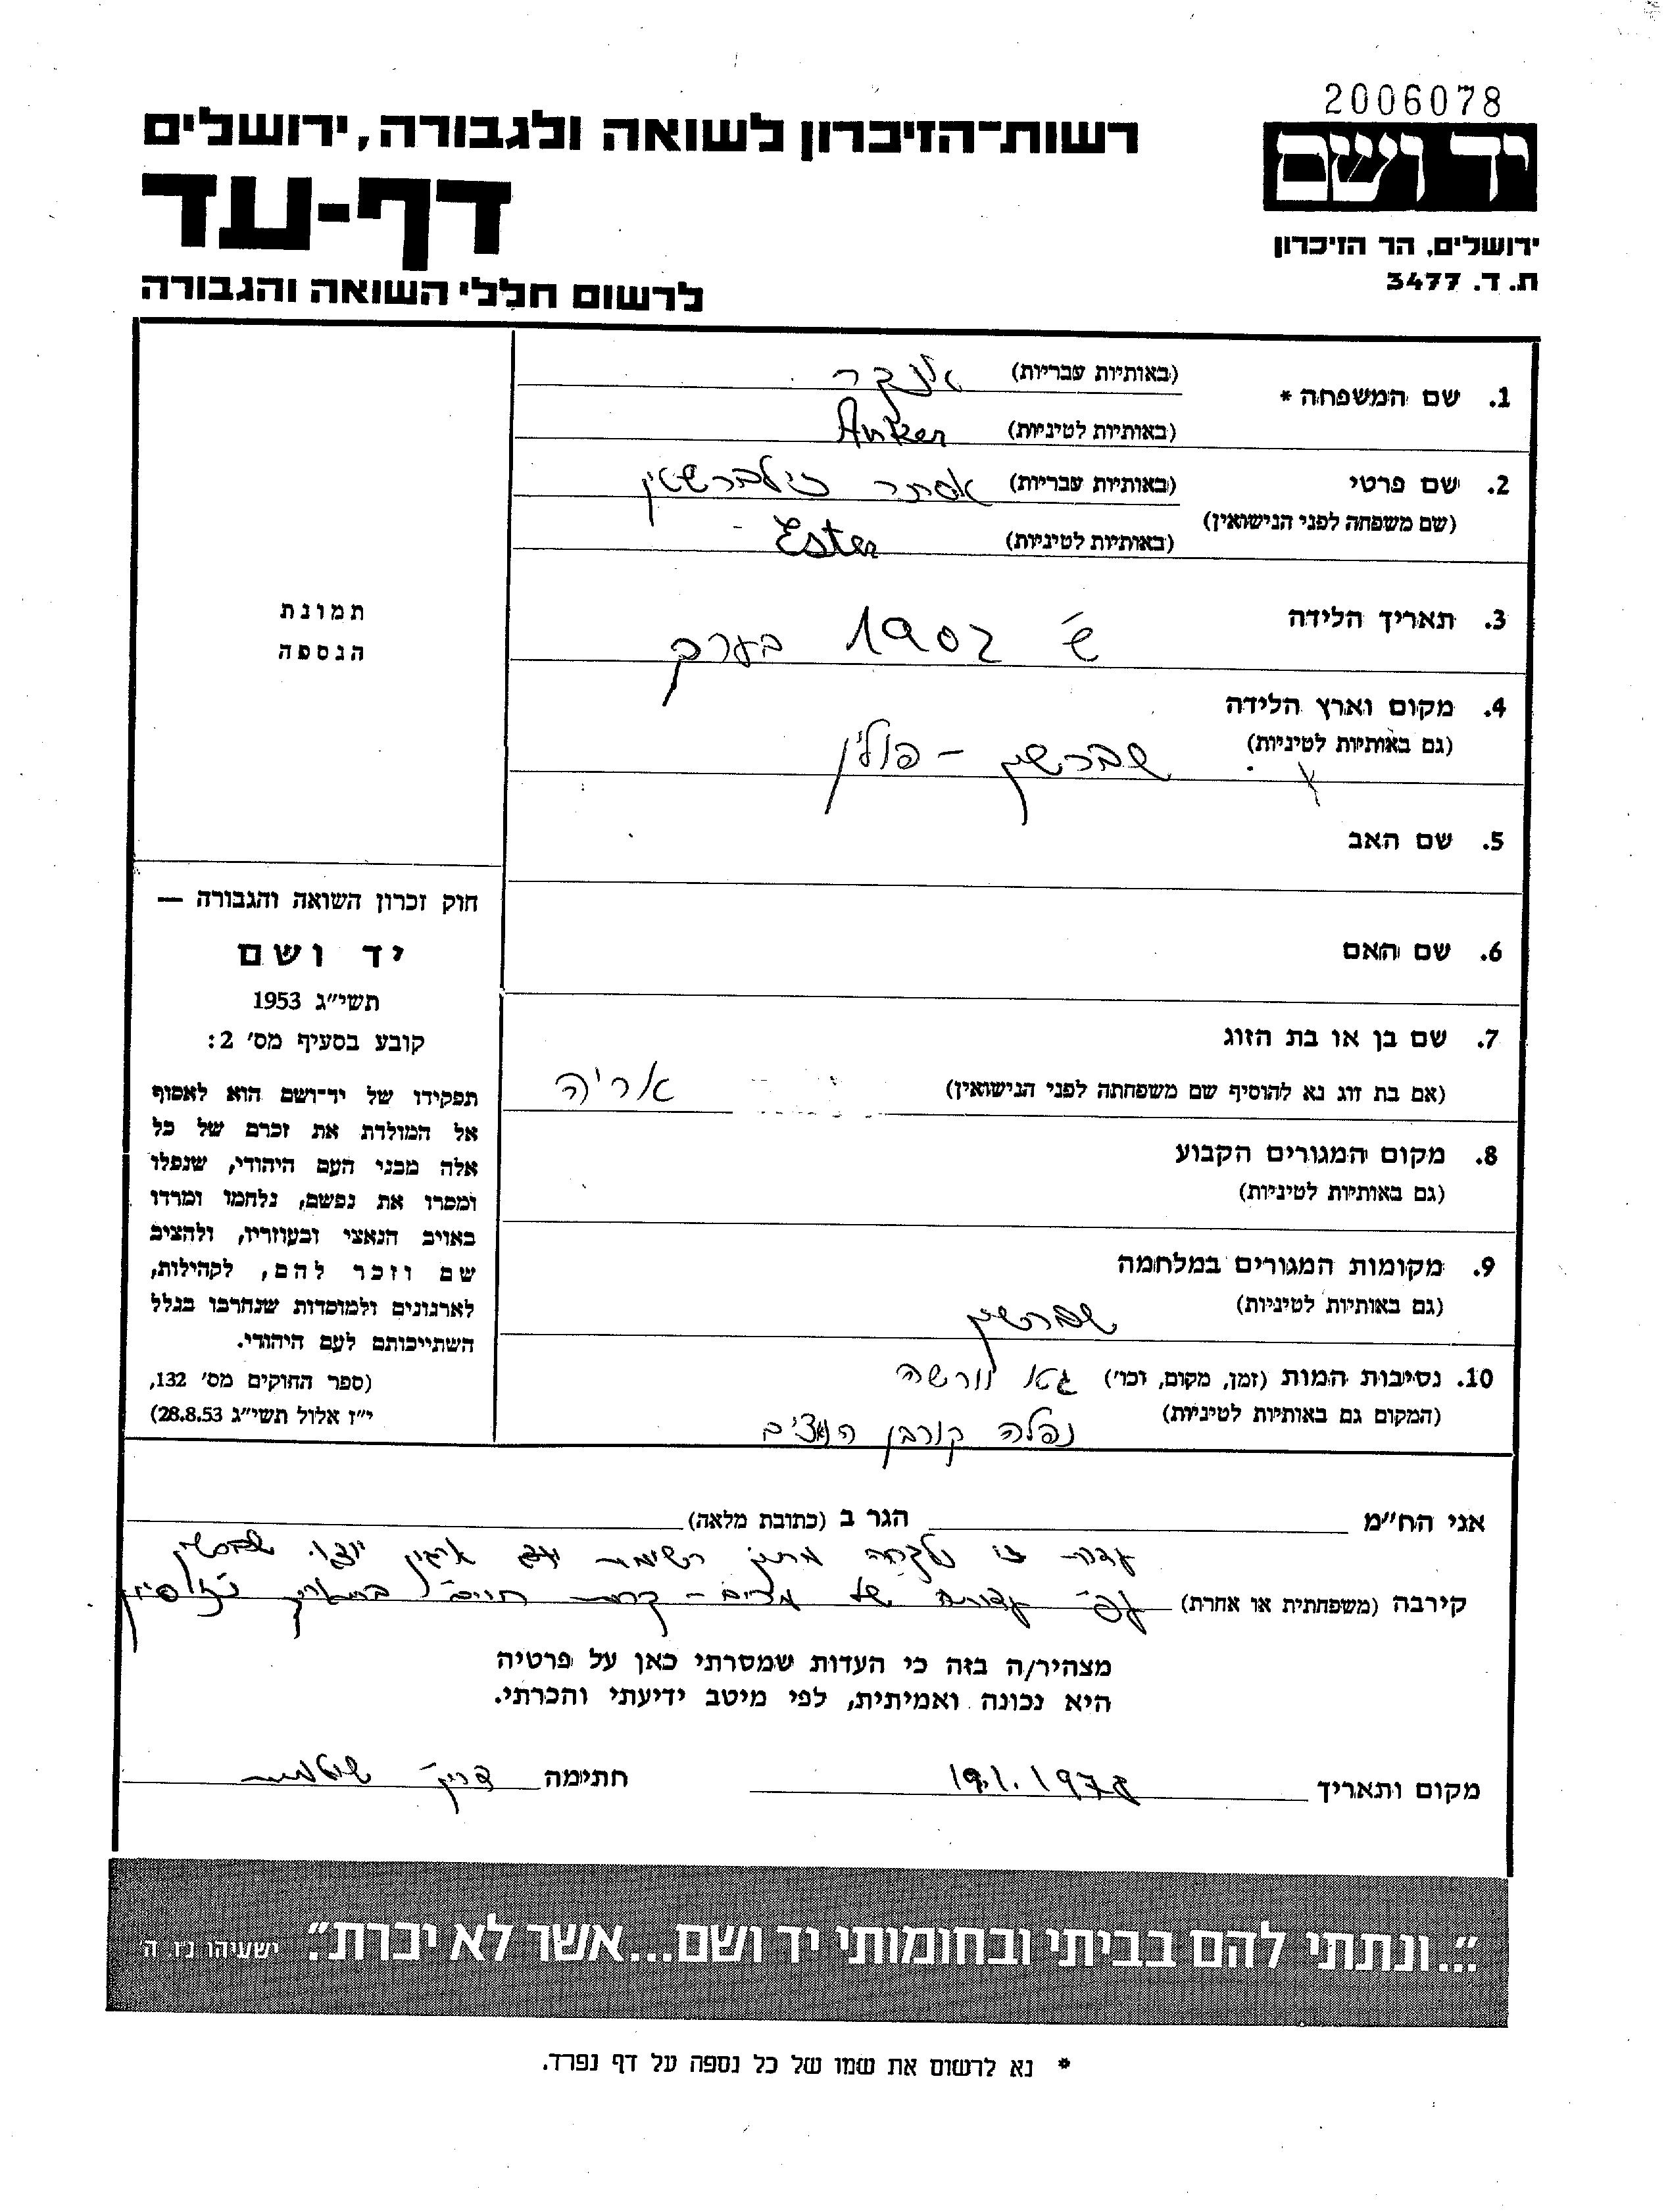 2006078
רשות־הזיכרון לשואה ולגבורה, ירושלים
יד ושם
דף-עד
ירושלים, הר הזיכרון
ת. ד. 3477
לרשום חללי השואה והגבורה
1. שם המשפחה *
(באותיות עבריות) אנקר
(באותיות לטיניות) Anker
2. שם פרטי
(שם משפחה לפני הנישואין)
(באותיות עבריות) אסתר זילברשטין
(באותיות לטיניות) Ester
3. תאריך הלידה
ש' 1902 בערך
4. מקום וארץ הלידה
(גם באותיות לטיניות)
שברשין - פולין
5. שם האב
6. שם האם
7. שם בן או בת הזוג
(אם בת זוג נא להוסיף שם משפחתה לפני הנישואין) אריה
8. מקום המגורים הקבוע
(גם באותיות לטיניות)
9. מקומות המגורים במלחמה
(גם באותיות לטיניות) שברשין
10. נסיבות המות (זמן, מקום, וכו') גטו וורשה
(המקום גם באותיות לטיניות) נפלה קורבן הנאצים
תמונת
הנספה
חוק זכרון השואה והגבורה —
יד ושם
תשי״ג 1953
קובע בסעיף מס' 2:
תפקידו של יד־ושם הוא לאסוף
אל המולדת את זכרם של כל
אלה מבני העם היהודי, שנפלו
ומסרו את נפשם, נלחמו ומרדו
באויב הנאצי ובעוזריו, ולהציב
שם וזכר להם, לקהילות,
לארגונים ולמוסדות שנחרבו בגלל
השתייכותם לעם היהודי.
(ספר החוקים מס' 132,
י״ז אלול תשי״ג 28.8.53)
אני הח״מ
הגר ב (כתובת מלאה)
עדות זו נלקחה מתוך רשימת ארגון יוצאי שברשין
קירבה (משפחתית או אחרת) עפ״י עדותה של קרית חיים
מצהיר/ה בזה כי העדות שמסרתי כאן על פרטיה
היא נכונה ואמיתית, לפי מיטב ידיעתי והכרתי.
מקום ותאריך 19.1.1978 חתימה
״...ונתתי להם בביתי ובחומותי יד ושם...אשר לא יכרת״. ישעיהו נו, ה
* נא לרשום את שמו של כל נספה על דף נפרד.